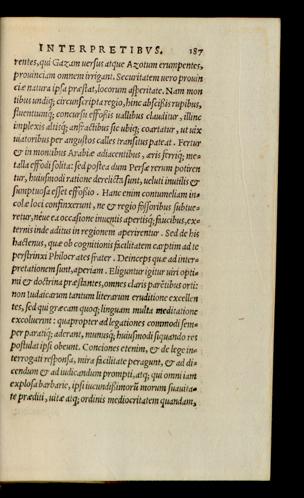 INTERPRETIBVS. 187
rentes, qui Gazam uersus atque Azotum erumpentes,
prouinciam omnem irrigant. Securitatem uero prouin
ciæ natura ipsa præstat, locorum asperitate. Nam mon
tibus undiq; circunscripta regio, hinc abscißis rupibus,
fluentumq; concursu effoßis uallibus clauditur, illinc
implexis altisq; anfractibus sic ubiq; coartatur, ut uix
uiatoribus per angustos calles transitus pateat. Fertur
& in montibus Arabiæ adiacentibus, æris ferriq; me-
talla effodi solita: sed postea dum Persæ rerum potiren
tur, huiusmodi ratione derelicta sunt, ueluti inutilis &
sumptuosa esset effoßio. Hanc enim contumeliam in-
colæ loci confinxerunt, ne & regio foßoribus subtue-
retur, néue ea occasione inuentis apertisq; faucibus, ex-
ternis inde aditus in regionem aperirentur. Sed de his
hactenus, quæ ob cognitionis facilitatem carptim ad te
perstrinxi Philocrates frater. Deinceps quæ ad inter-
pretationem sunt, aperiam. Eliguntur igitur uiri opti-
mi & doctrina præstantes, omnes claris parẽtibus orti:
non Iudaicarum tantum literarum eruditione excellen
tes, sed qui græcam quoq; linguam multa meditatione
excoluerint: quapropter ad legationes commodi sem-
per paratiq; aderant, munusq; huiusmodi siquando ret
postulat ipsi obeunt. Conciones etenim, & de lege in-
terrogati responsa, mira facilitate peragunt, & ad di-
cendum & ad iudicandum prompti, atq; qui omni iam
explosa barbarie, ipsi iucundißimorũ morum suauita-
te præditi, uitæ atq; ordinis mediocritatem quandam,